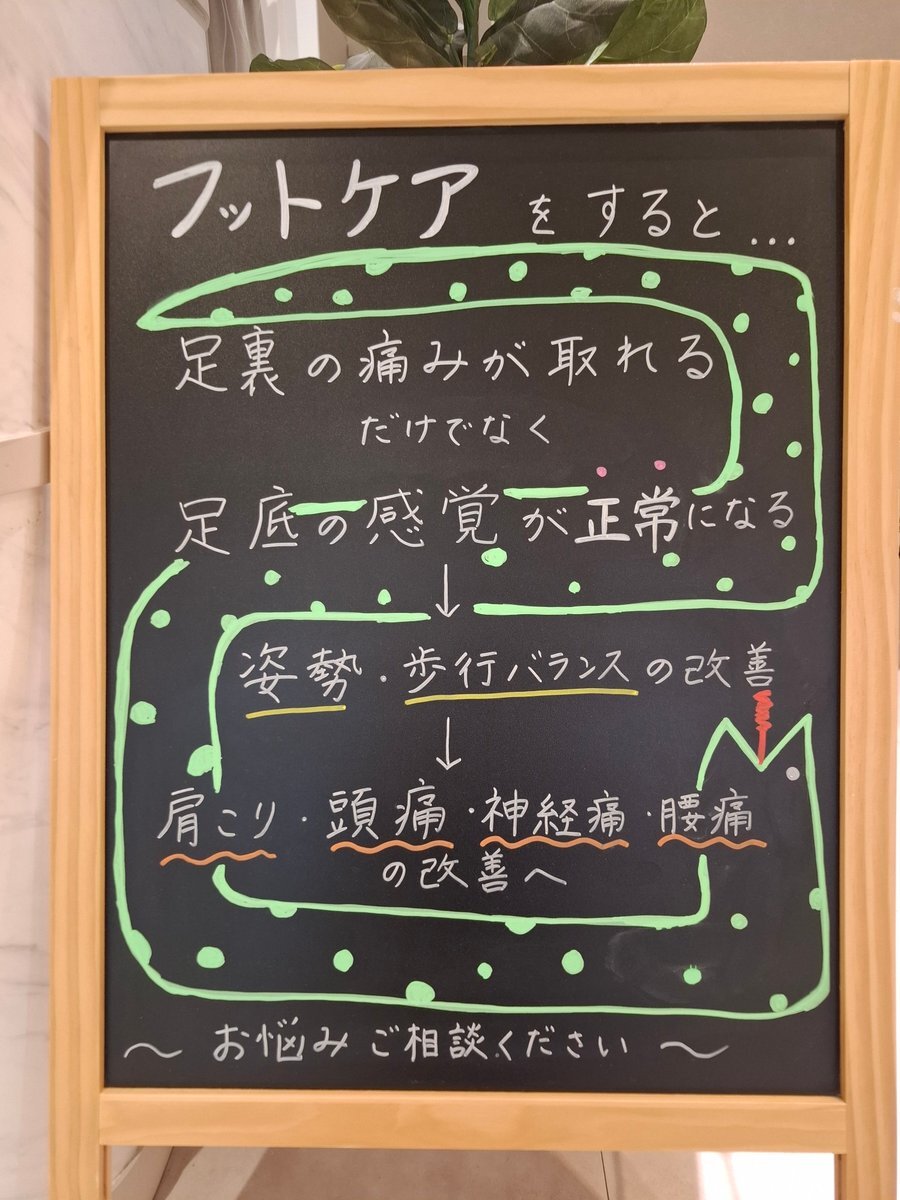 フットケア をすると...
足裏の痛みが取れる
だけでなく
足底の感覚が正常になる
↓
姿勢・歩行バランスの改善
↓
肩こり・頭痛・神経痛・腰痛
の改善へ
〜 お悩みご相談ください 〜